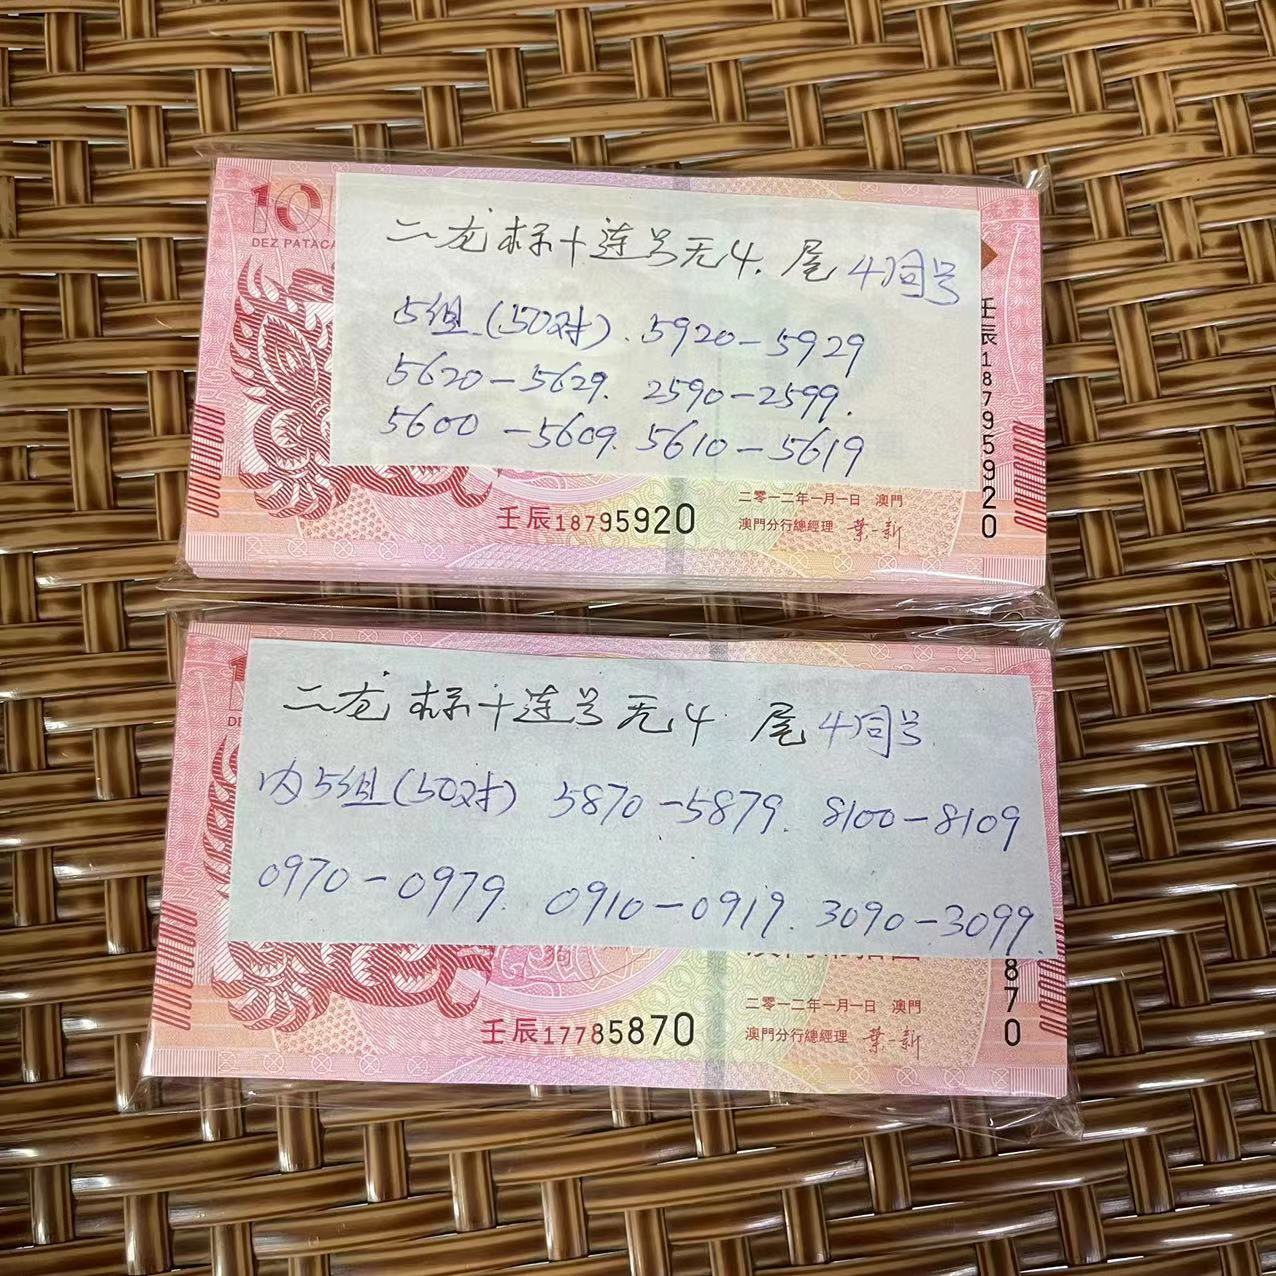 10
DEZ PATACA
二龙标十连号无4. 尾4同号
5组(50对). 5920-5929
5620-5629. 2590-2599.
5600-5609. 5610-5619
壬辰18795920
二零一二年一月一日 澳門
澳門分行總經理 葉一新
壬辰18795920
1
DE
二龙标十连号无4 尾4同号
内5组(50对) 5870-5879. 8100-8109
0970-0979. 0910-0919. 3090-3099.
狗
870
二零一二年一月一日 澳門
壬辰17785870
澳門分行總經理 葉一新